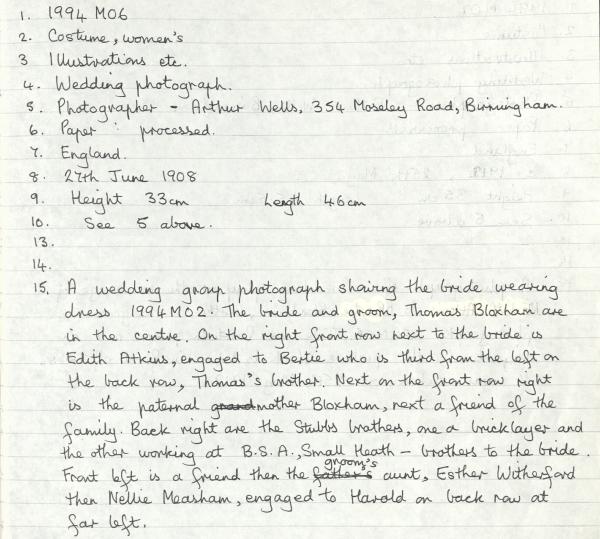 1. 1994 M06
2. Costume, women's
3 Illustrations etc.
4. Wedding photograph.
5. Photographer - Arthur Wells, 354 Moseley Road, Birmingham.
6. Paper : processed.
7. England.
8. 27th June 1908
9. Height 33cm Length 46cm
10. See 5 above.
13.
14.
15. A wedding group photograph showing the bride wearing
dress 1994M02. The bride and groom, Thomas Bloxham are
in the centre. On the right front row next to the bride is
Edith Atkins, engaged to Bertie who is third from the left on
the back row, Thomas's brother. Next on the front row right
is the paternal grandmother Bloxham, next a friend of the
family. Back right are the Stubbs brothers, one a bricklayer and
the other working at B.S.A., Small Heath - brothers to the bride.
groom's
Front left is a friend then the father's aunt, Esther Witherford
then Nellie Measham, engaged to Harold on back row at
far left.